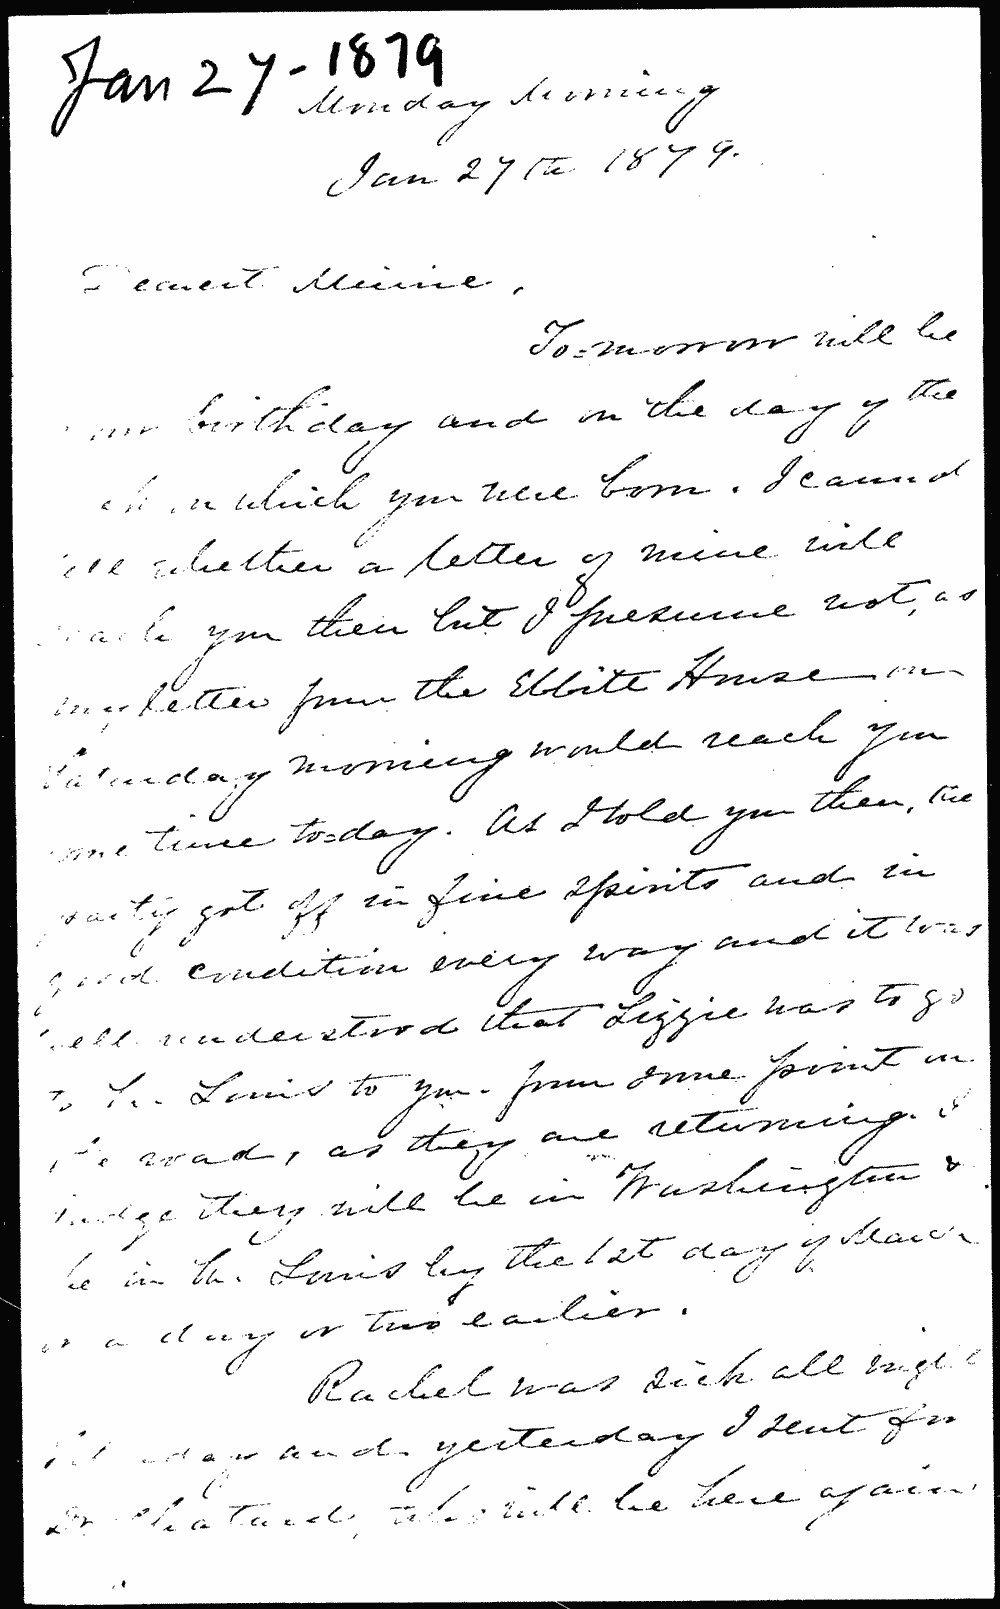 Jan 27-1879
Monday Morning
Jan 27th 1879.
Dearest Minnie,
To=morrow will be
your birthday and on the day of the
which you were born. I cannot
tell whether a letter of mine will
reach you then but I presume not, as
my letter from the Ebbitt House on
Saturday morning would reach you
some time to=day. As I told you then, the
party got off in fine spirits and in
good condition every way and it was
well understood that Lizzie was to go
to St. Louis to you. from some point on
the road, as they are returning. I
judge they will be in Washington &
be in St. Louis by the 1st day of March
or a day or two earlier.
Rachel was sick all night
Saturday and yesterday I sent for
Dr Chatard, who will be here again